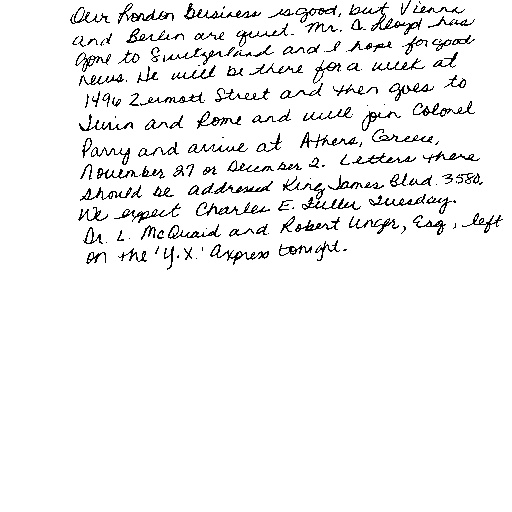 Our London business is good, but Vienna
and Berlin are quiet. Mr. D. Lloyd has
gone to Switzerland and I hope for good
news. He will be there for a week at
1496 Zermott Street and then goes to
Turin and Rome and will join Colonel
Parry and arrive at Athens, Greece,
November 27 or December 2. Letters there
should be addressed King James Blvd. 3580.
We expect Charles E. Fuller Tuesday.
Dr. L. McQuaid and Robert Unger, Esq., left
on the 'Y.X.' Express tonight.